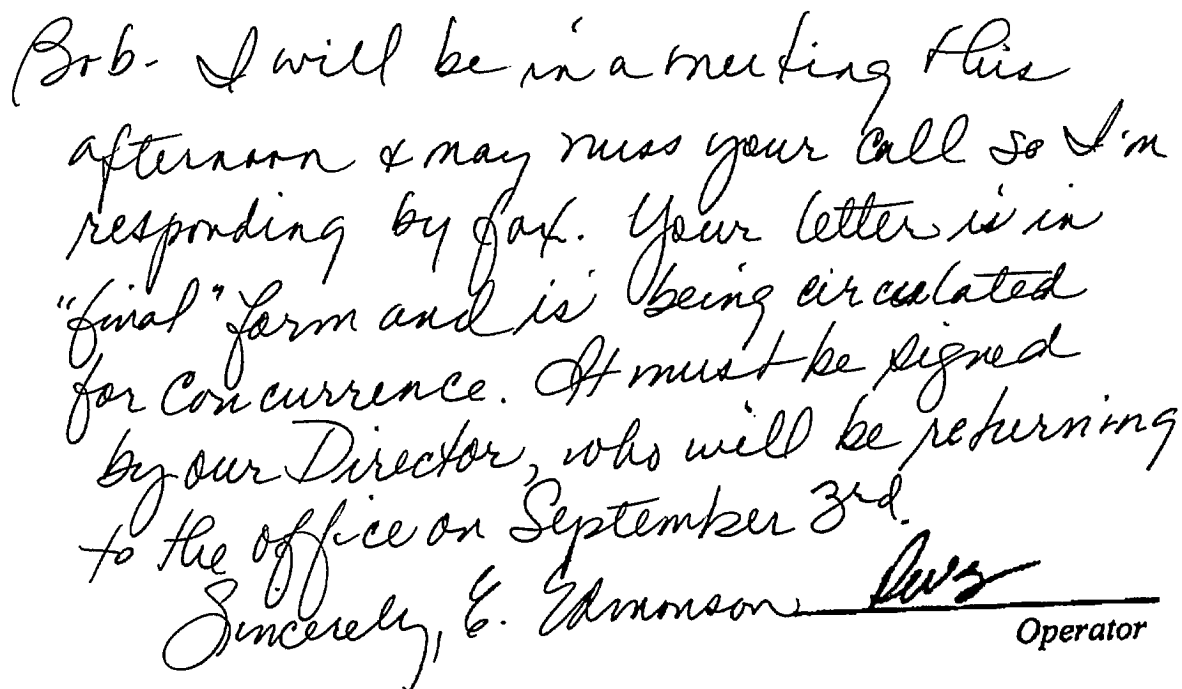 Bob- I will be in a meeting this
afternoon & may miss your call so I'm
responding by fax. Your letter is in
"final" form and is being circulated
for concurrence. It must be signed
by our Director, who will be returning
to the office on September 3rd.
Sincerely, E. Edmonson
Operator